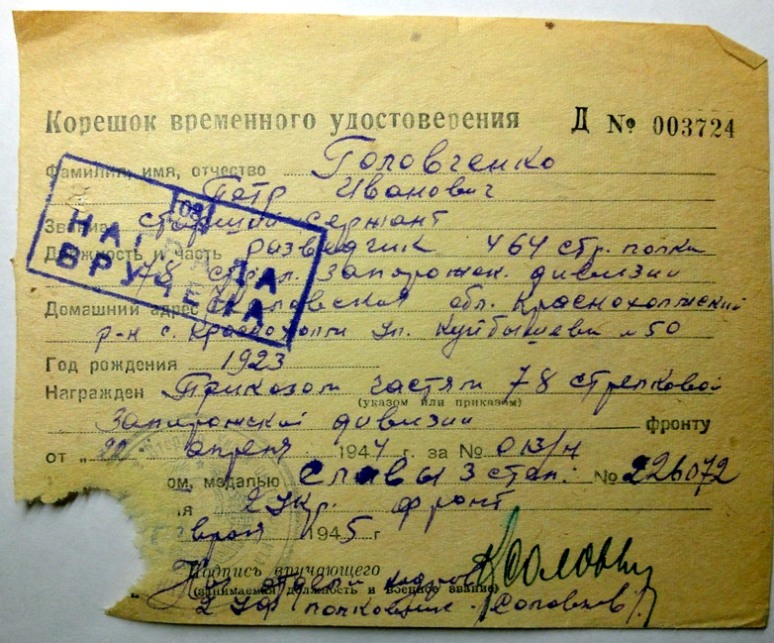 Корешок временного удостоверения Д № 003724
Фамилия, имя, отчество Головченко
Петр Иванович
Звание старший сержант
Должность и часть разведчик 464 стр. полка
78 стрел. Запорожск. дивизии
Домашний адрес обл. Краснохолмский
р-н с. Краснохолм ул. Куйбышева №50
Год рождения 1923
Награжден Приказом частям 78 стрелковой
(указом или приказом)
Запорожской дивизии фронту
от „22 апреля 1944 г. за № 013/н
ом, медалью Славы 3 степ. № 226072
ия 2 Укр. фронт
враля 1945 г
Подпись вручающего
отдела кадров
(занимаемая должность и военное звание)
2 УФ полковник (Соловьев)
09
НАГРАДА
ВРУЧЕНА